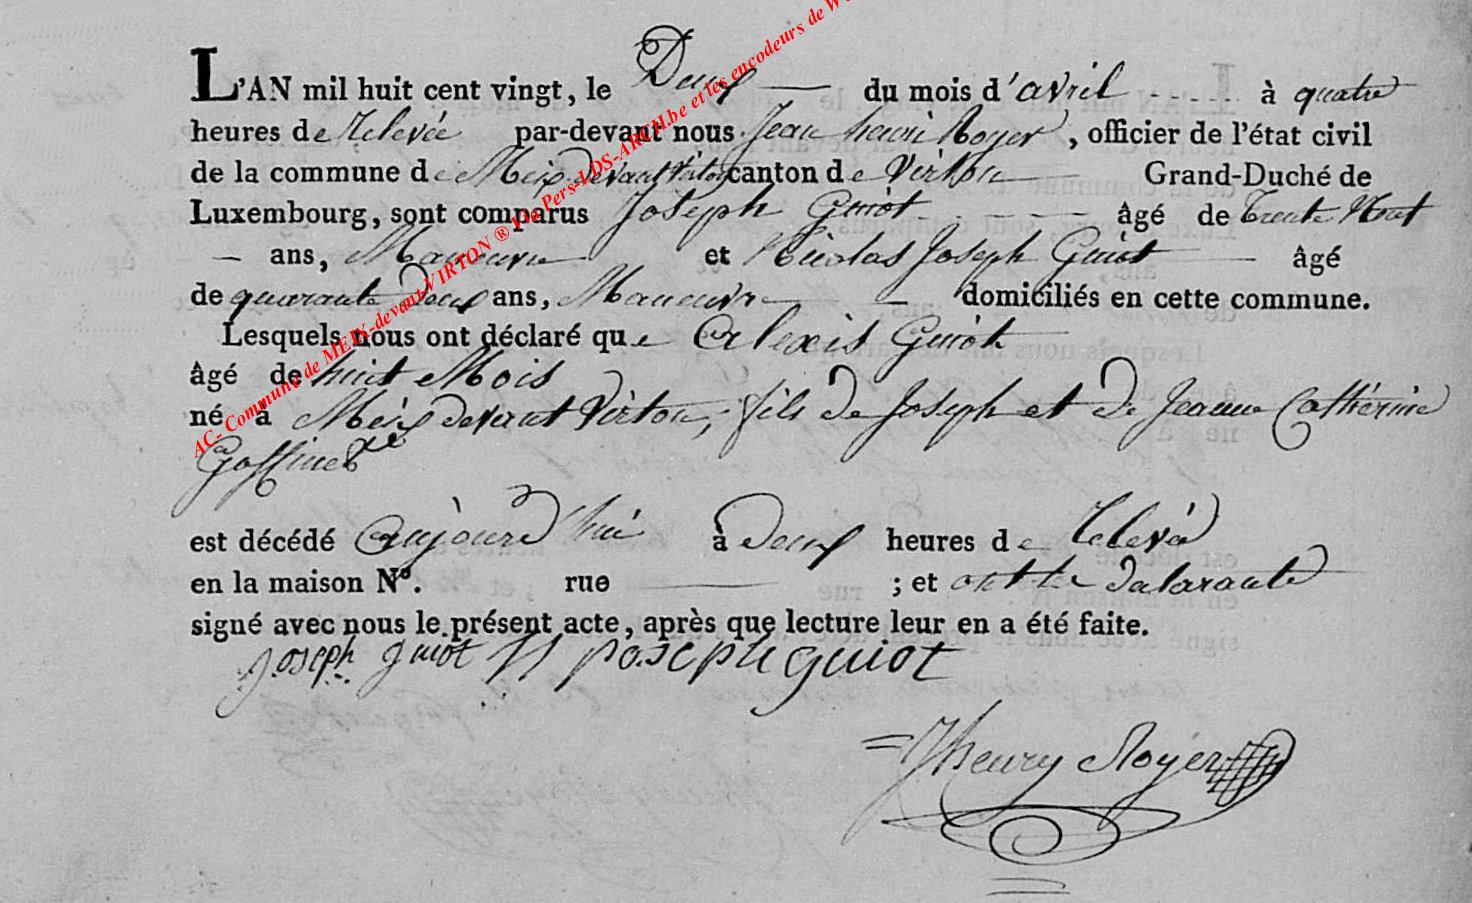 L'AN mil huit cent vingt, le Deux du mois d'avril à quatre
heures de relevée par-devant nous Jean henri Royer, officier de l'état civil
de la commune de Meix devant Virton canton de Virton Grand-Duché de
Luxembourg, sont comparus Joseph Guiot âgé de trente
ans, Maneuvre et Nicolas Joseph Guiot âgé
de quarante deux ans, Maneuvre domiciliés en cette commune.
Lesquels nous ont déclaré que alexis Guiot
âgé de huit Mois
né à Meix devant Virton, fils de Joseph et de Jeanne Catherine
Goffinet
est décédé aujourd'hui à deux heures de relevée
en la maison N°. rue ; et ont
signé avec nous le présent acte, après que lecture leur en a été faite.
joseph guiot n joseph guiot
Jhenry Royer
AC- Commune de MEIX-devant-VIRTON ® Via Pers-LDS-ARCH.be et les encodeurs de